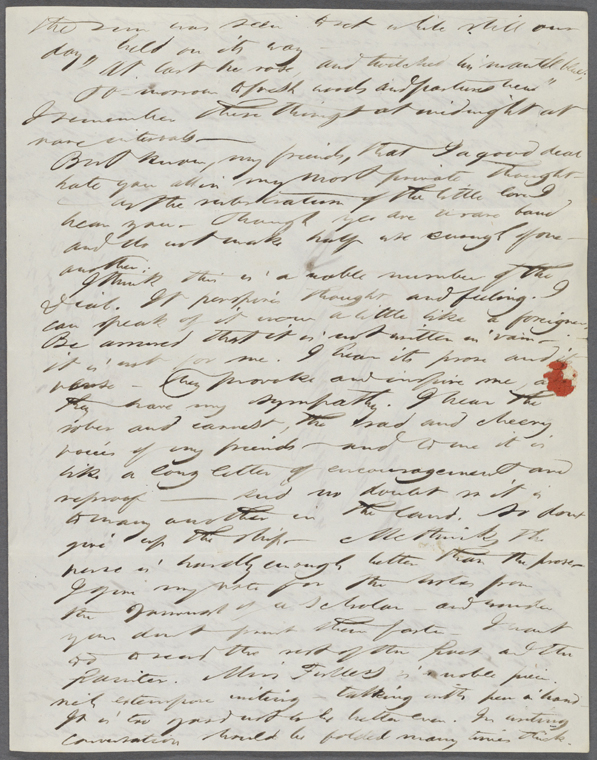 the sun was seen to set while still our
day" held on its way —
"At last he rose, and twitched his mantle blue;
To-morrow to fresh woods and pastures new"
I remember these things at midnight at
rare intervals —
But know, my friends, that I a good deal
hate you all in my most private thoughts
— as the substratum of the little love I
bear you. Though you are a rare band
and do not make half use enough of one
another.
I think this is a noble number of the
Dial. It perspires thought and feeling. I
can speak of it now a little like a foreigner
Be assured that it is not written in vain —
it is not for me. I hear its prose and its
verse — They provoke and inspire me, and
they have my sympathy. I hear the
sober and earnest, the sad and cheery
voices of my friends and to me it is
like a long letter of encouragement and
reproof — and no doubt so it is
to many another in the land. So don't
give up the ship — Methinks the
verse is hardly enough better than the prose —
I give my vote for the notes from
the Journal of a Scholar — and wonder
you don't print them faster — I want
to read the rest of the Poet and the
Painter. Miss Fuller's is a noble piece,
rich extempore writing — talking with pen in hand —
It is too good not to be better even. In writing
conversation should be folded many times thick.